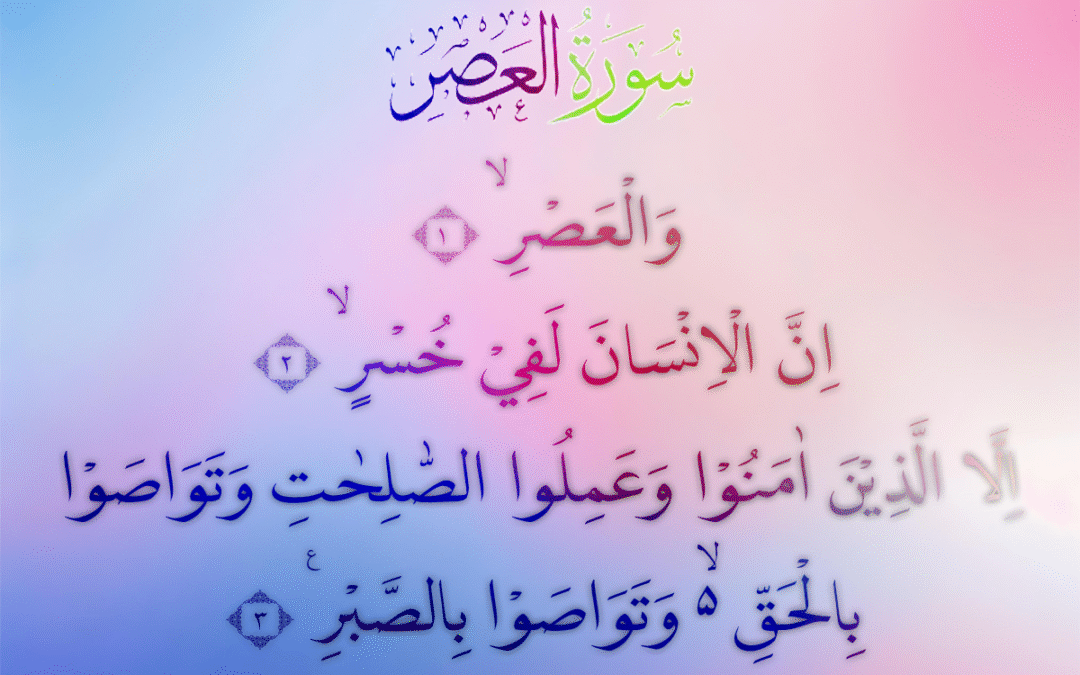 سُورَةُ العَصْرِ
وَالْعَصْرِ ۙ ﴿١﴾
اِنَّ الْاِنْسَانَ لَفِيْ خُسْرٍ ۙ ﴿٢﴾
اِلَّا الَّذِيْنَ اٰمَنُوْا وَعَمِلُوا الصّٰلِحٰتِ وَتَوَاصَوْا
بِالْحَقِّ ۙ۵ وَتَوَاصَوْا بِالصَّبْرِ ࣖ ﴿٣﴾